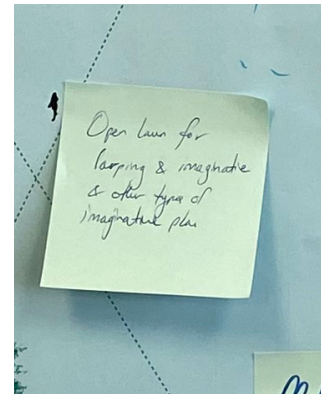 Open lawn for
larping & imaginative
& other types of
imaginative play